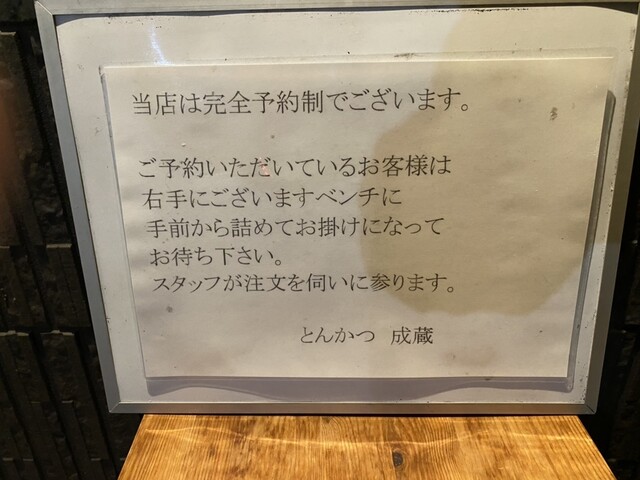 当店は完全予約制でございます。
ご予約いただいているお客様は
右手にございますベンチに
手前から詰めてお掛けになって
お待ち下さい。
スタッフが注文を伺いに参ります。
とんかつ　成蔵